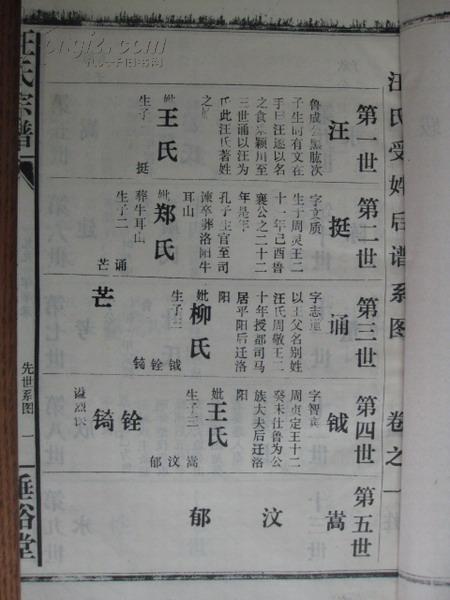 汪氏受姓后谱系图 卷之一
第一世
汪
鲁成公黑肱次
子生而有文在
手曰汪遂以名
之食采颍川至
三世诵以汪为
氏此汪氏著姓
之始
妣王氏
生子 挺
第二世
挺
字文质
生于周灵王二
十一年己酉鲁
襄公之二十二
年是年
孔子生官至司
谏卒葬洛阳牛
耳山
妣郑氏
葬牛耳山
生子二
诵
芒
第三世
诵
字志
以王父名别姓
汪氏周敬王二
十年授都司马
居平阳后迁洛
阳
妣柳氏
生子三
钺 铨 锜
芒
第四世
钺
字智
周贞定王十二
癸未仕鲁为公
族大夫后迁洛
阳
妣王氏
生子三
嵩 汶 郁
铨
锜
谥烈
第五世
嵩
汶
郁
汪氏宗谱
先世系图 一
垂裕堂